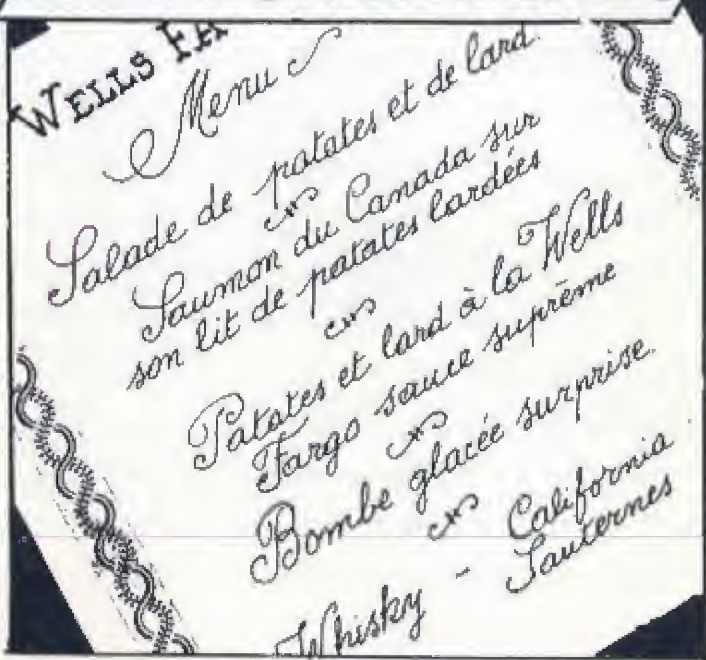 WELLS FA
Menu
Salade de patates et de lard.
Saumon du Canada sur
son lit de patates lardées
Patates et lard à la Wells
Fargo sauce suprême
Bombe glacée surprise.
Whisky - California
Sauternes